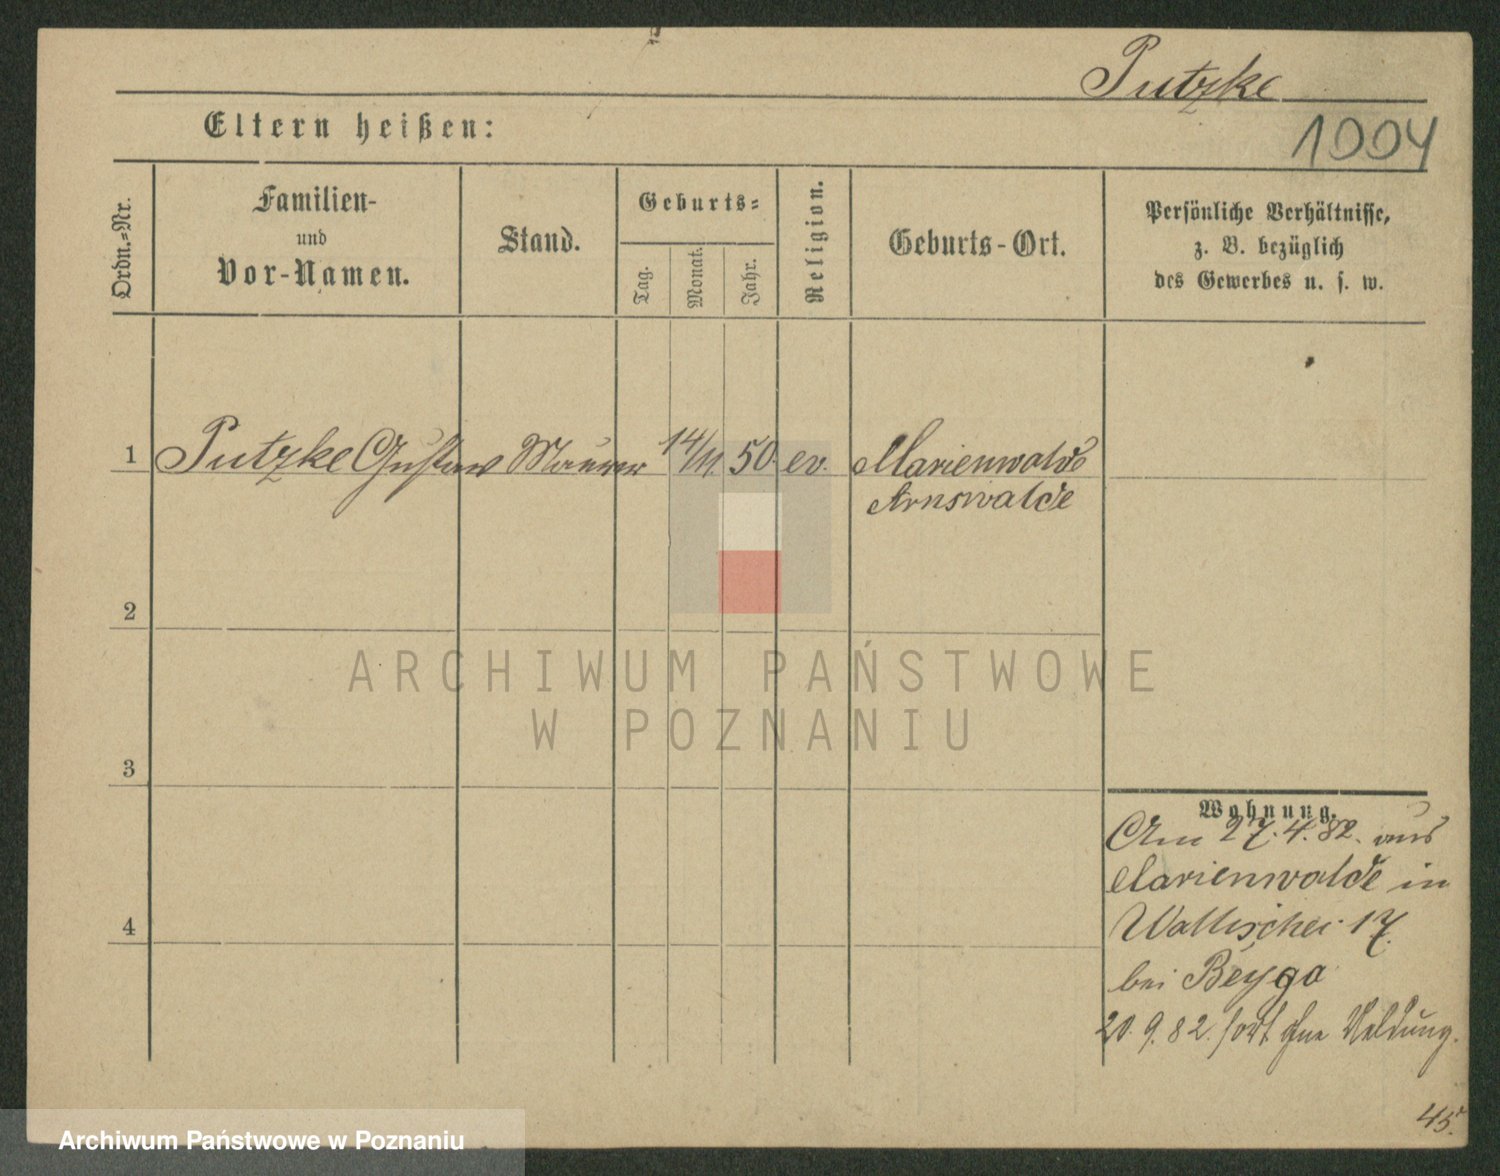 Putzke
Eltern heißen:
1004
Ordn.-Nr.
Familien-
und
Vor-Namen.
Stand.
Geburts-
Tag.
Monat.
Jahr.
Religion.
Geburts-Ort.
Persönliche Verhältnisse,
z. B. bezüglich
des Gewerbes u. s. w.
1 Putzke Gustav Maurer 14/11. 50. ev. Marienwalde
Arnswalde
2
ARCHIWUM PAŃSTWOWE
W POZNANIU
3
Wohnung.
Am 27.4.82. aus
Marienwalde in
Wallischei 17.
bei Beyga
4
20.9.82. fort ohne Meldung.
45.
Archiwum Państwowe w Poznaniu